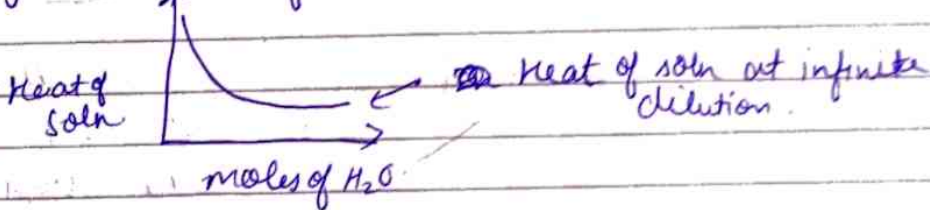 Heat of
soln
Heat of soln at infinite
dilution.
moles of H₂O